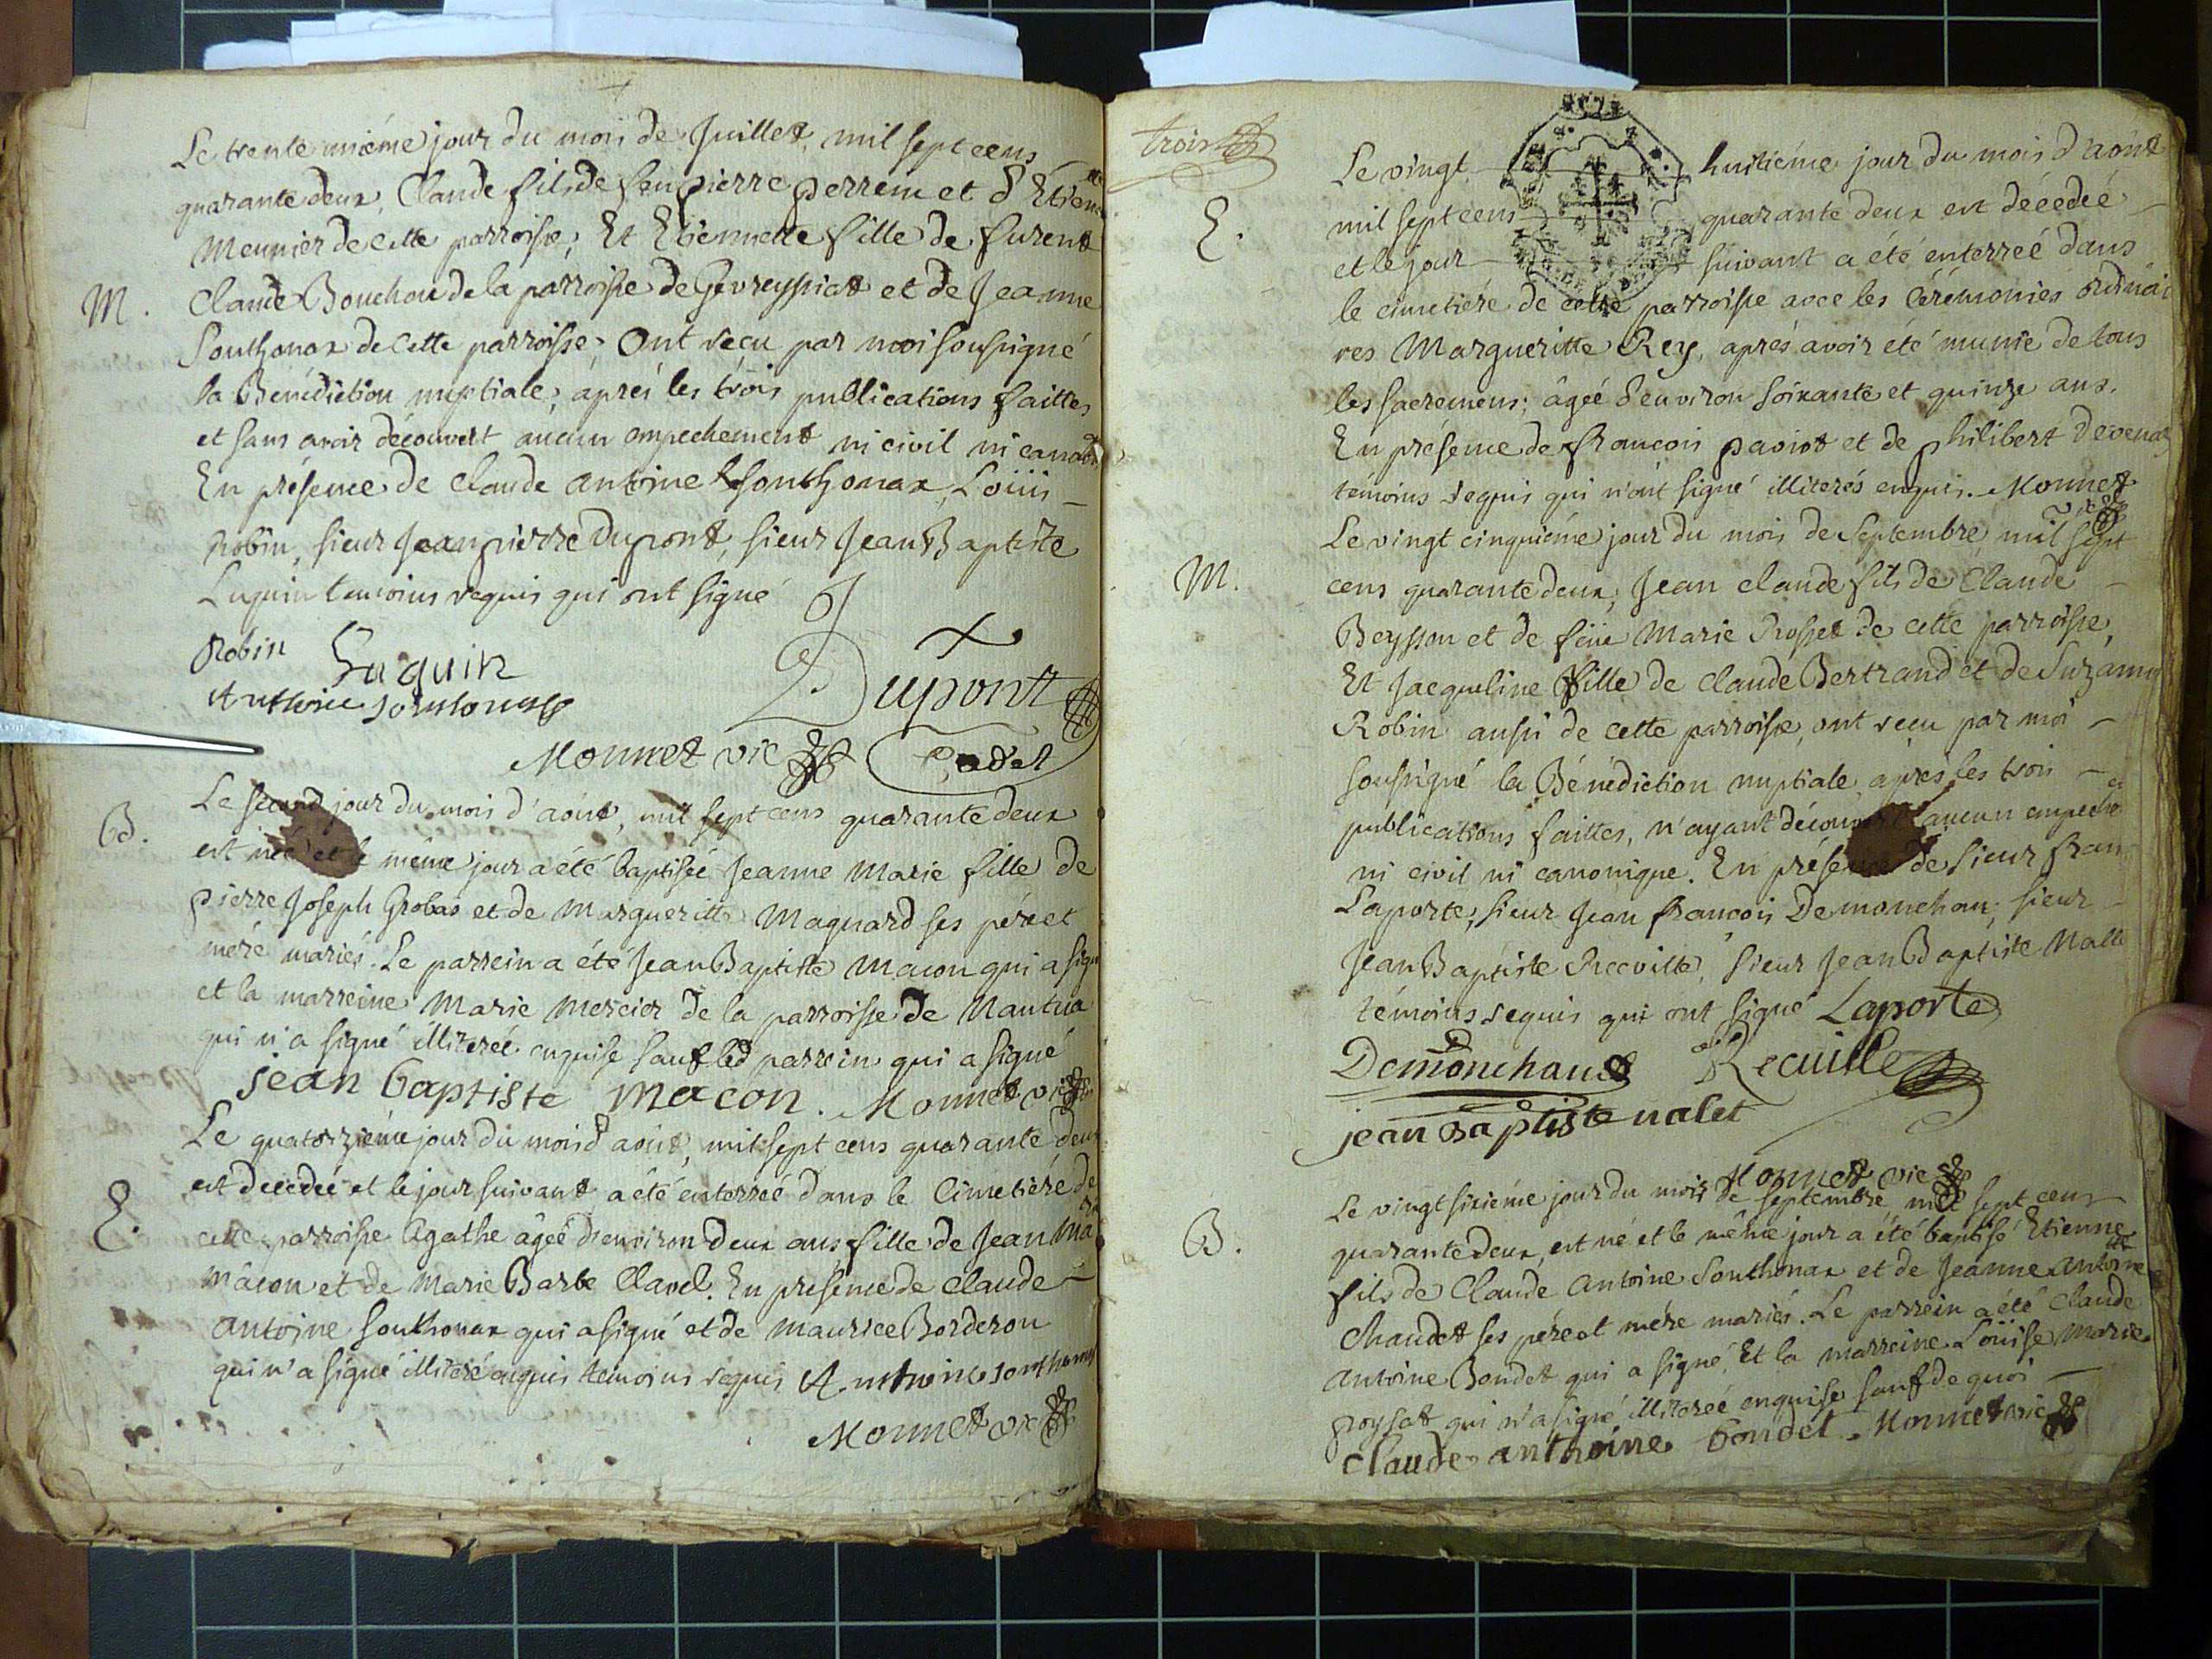 Le trente uniéme jour du mois de Juillet, mil sept cens
quarante deux, Claude fils de feu pierre perrein et d'Etienne
Meunier de Cette parroisse; Et Etiennette fille de furent
M. Claude Bouchon de la parroisse de Gevreyssiat et de Jeanne
Southonax de Cette parroisse; Ont reçu par moi soussigné
la Bénédiction nuptiale; aprés les trois publications faittes
et sans avoir découvert aucun empechement ni civil ni canon
En présence de Claude Antoine Southonax, Loüis
Robin, sieur Jean pierre Dupont, sieur Jean Baptiste
Luquin temoins requis qui ont signé
Robin Luquin Dupont
Anthoine
Monnet vic
B. Le second jour du mois d'aôut, mil sept cens quarante deux
est née et le même jour a été baptisée Jeanne Marie fille de
pierre Joseph Grobas et de Margueritte Maguard ses pére et
mere mariés. Le parrein a été Jean Baptiste Macon qui a signé
et la marreine Marie Mercier de la parroisse de Nantua
qui n'a signé illiterée enquise sauf led parrein qui a signé
jean baptiste macon. Monnet vic
Le quatorziéme jour du mois d'aôut, mil sept cens quarante deux
est decedeé et le jour suivant a été enterreé dans le Cimetiére de
E. cette parroisse Agathe âgeé d'environ deux ans fille de Jean Ma
Mâcon et de Marie Barbe Clavel. En présence de Claude
Antoine Southonax qui a signé et de Maurice Borderon
qui n'a signé illiteré enquis temoins requis Anthoine Southonax
Monnet vic
trois
Le vingt huitiéme jour du mois d'aôut
E. mil sept cens quarante deux est décedeé
et le jour suivant a été enterreé dans
le cimetiére de cette parroisse avec les Cérémonies ordinai
res Margueritte Rey, aprés avoir été munie de tous
les sacremens; âgeé d'environ soixante et quinze ans.
En présence de françois paviot et de philibert Devenas
témoins requis qui n'ont signé illiterés enquis. Monnet
vic
Le vingt cinquiéme jour du mois de Septembre mil sept
M. cens quarante deux, Jean Claude fils de Claude
Beysson et de feüe Marie Rosset de cette parroisse,
Et Jacqueline fille de Claude Bertrand et de Suzanne
Robin aussi de Cette parroisse, ont reçu par moi
soussigné la Bénédiction nuptiale aprés les trois
publications faittes, n'ayant découvert aucun empeche
ni civil ni canonique. En présence de sieur fran
Laporte, sieur Jean françois Demonchau; sieur
Jean Baptiste Recville, sieur Jean Baptiste Nalle
témoins requis qui ont signé Laporte
Demonchaux Recuille
jean Baptiste nalet
Monnet vic
Le vingt sixiéme jour du mois de septembre mil sept cens
B. quarante deux, est né et le même jour a été baptisé Etienne
fils de Claude Antoine Southonax et de Jeanne Antoinette
Chaudet ses pére et mére mariés. Le parrein a été Claude
Antoine Bondet qui a signé. Et la marreine Loüise Marie
poysat qui n'a signé illiterée enquise sauf de quoi
Claude anthoine bondet. Monnet vic